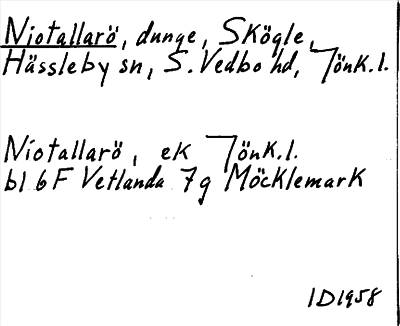 Niotallarö, dunge, Skögle,
Hässleby sn, S. Vedbo hd, Jönk.l.
Niotallarö, ek Jönk.l.
bl 6F Vetlanda 7g Möcklemark
ID1958